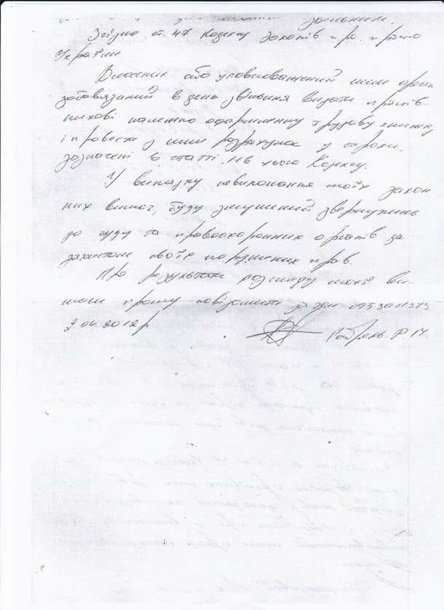 звільнен
Згідно ст. 47 Кодексу Законів про працю
України
Власник або уповноважений ним орган
зобов'язаний в день звільнення видати праців-
никові належно оформлену трудову книжку
і провести з ним розрахунок у строки,
зазначені в статті 116 цього Кодексу.
У випадку невиконання моїх закон
них вимог, буду змушений звернутись
до суду та правоохоронних органів за
захистом своїх порушених прав.
Про результати розгляду моєї ви-
моги прошу повідомити
2012р